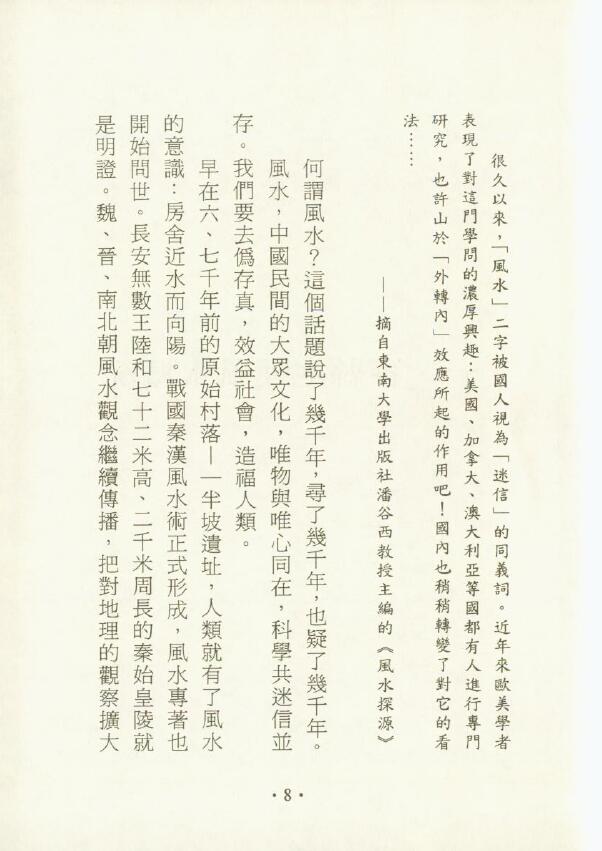 很久以來，「風水」二字被國人視為「迷信」的同義詞。近年來歐美學者
表現了對這門學問的濃厚興趣：美國、加拿大、澳大利亞等國都有人進行專門
研究，也許山於「外轉內」效應所起的作用吧！國內也稍稍轉變了對它的看
法……
——摘自東南大學出版社潘谷西教授主編的《風水探源》
何謂風水？這個話題說了幾千年，尋了幾千年，也疑了幾千年。
風水，中國民間的大眾文化，唯物與唯心同在，科學共迷信並
存。我們要去僞存真，效益社會，造福人類。
早在六、七千年前的原始村落——半坡遺址，人類就有了風水
的意識：房舍近水而向陽。戰國秦漢風水術正式形成，風水專著也
開始問世。長安無數王陸和七十二米高、二千米周長的秦始皇陵就
是明證。魏、晉、南北朝風水觀念繼續傳播，把對地理的觀察擴大
·8·